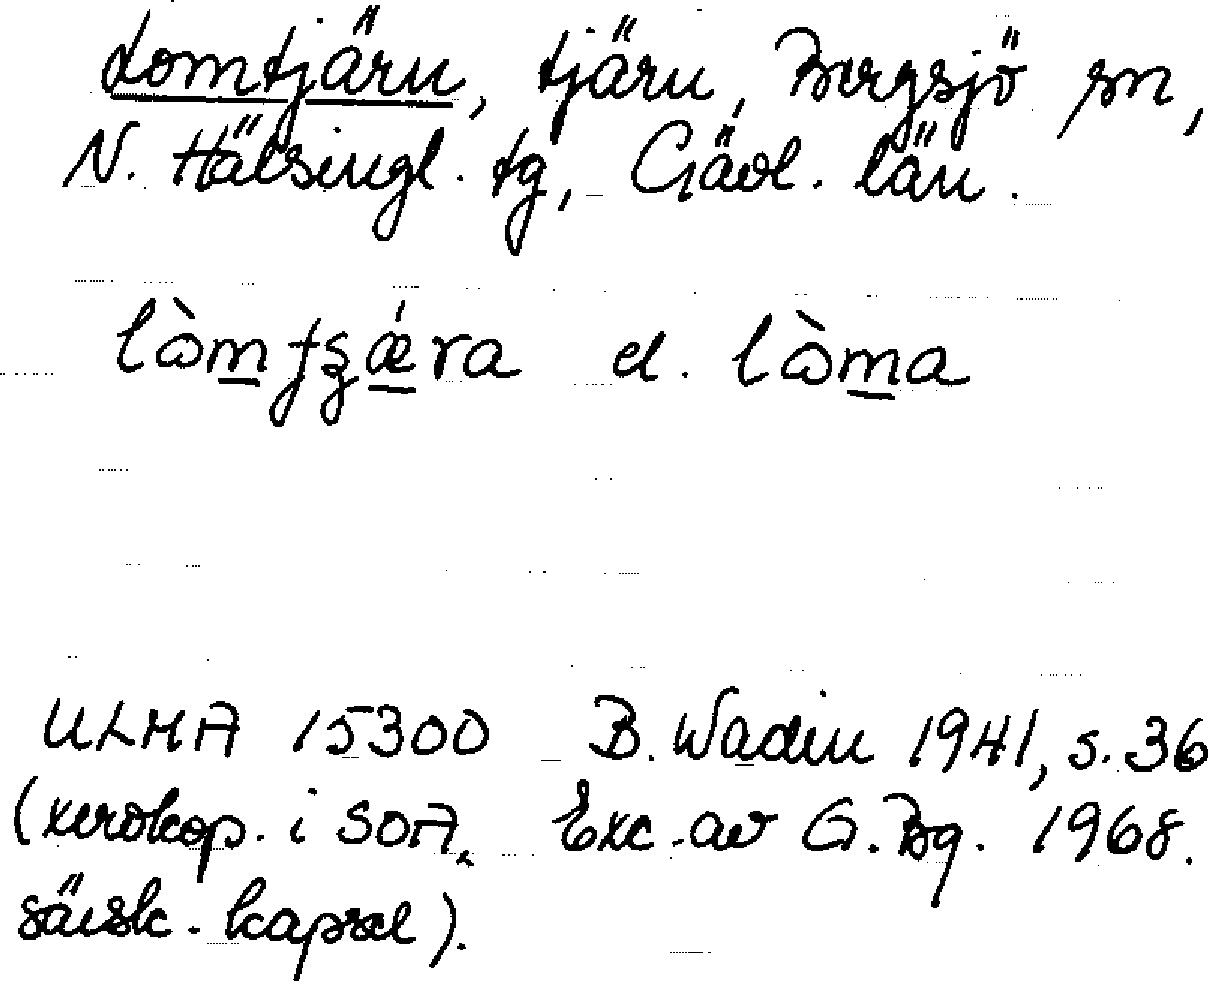 Lomtjärn, tjärn, Bergsjö sn,
N. Hälsingl. tg, Gävl. län.
el. lòma
ULMA 15300 B. Wadin 1941, s. 36
(xerokop. i SOA, Exc. av G. Bg. 1968.
särsk. kapsel).